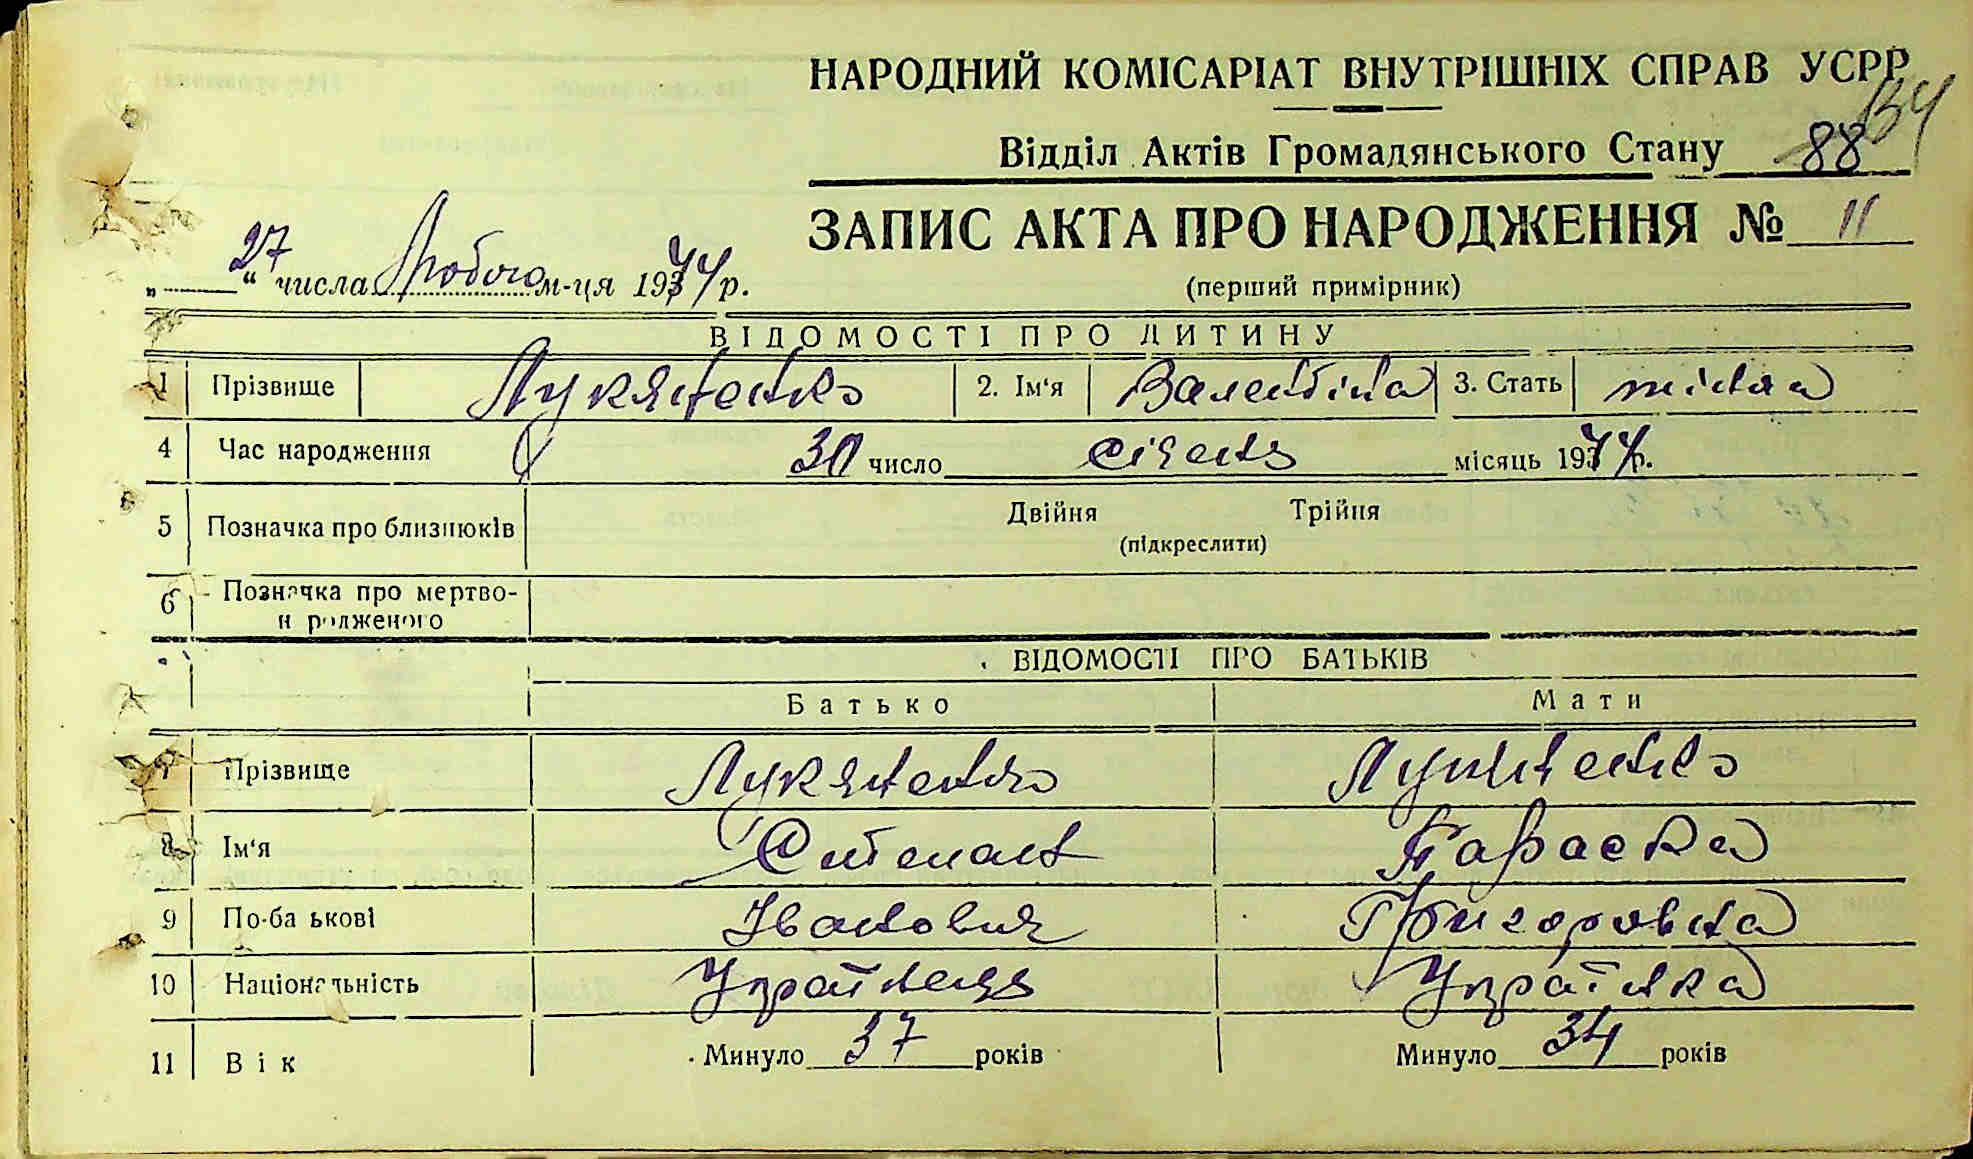 НАРОДНИЙ КОМІСАРІАТ ВНУТРІШНІХ СПРАВ УСРР
134
Відділ Актів Громадянського Стану 88
ЗАПИС АКТА ПРО НАРОДЖЕННЯ № 11
„27“ числа Лютого м-ця 1944 р.
(перший примірник)
ВІДОМОСТІ ПРО ДИТИНУ
1 Прізвище Лукяненко 2. Ім‘я Валентіна 3. Стать жіноча
4 Час народження 30 число січень місяць 1944 р.
5 Позначка про близнюків Двійня Трійня
(підкреслити)
6 Позначка про мертво-
н родженого
ВІДОМОСТІ ПРО БАТЬКІВ
Батько Мати
7 Прізвище Лукяненко
8 Ім‘я Степан Параска
9 По-ба ькові Іванович Григоровна
10 Національність Українець Українка
11 Вік Минуло 37 років Минуло 34 років